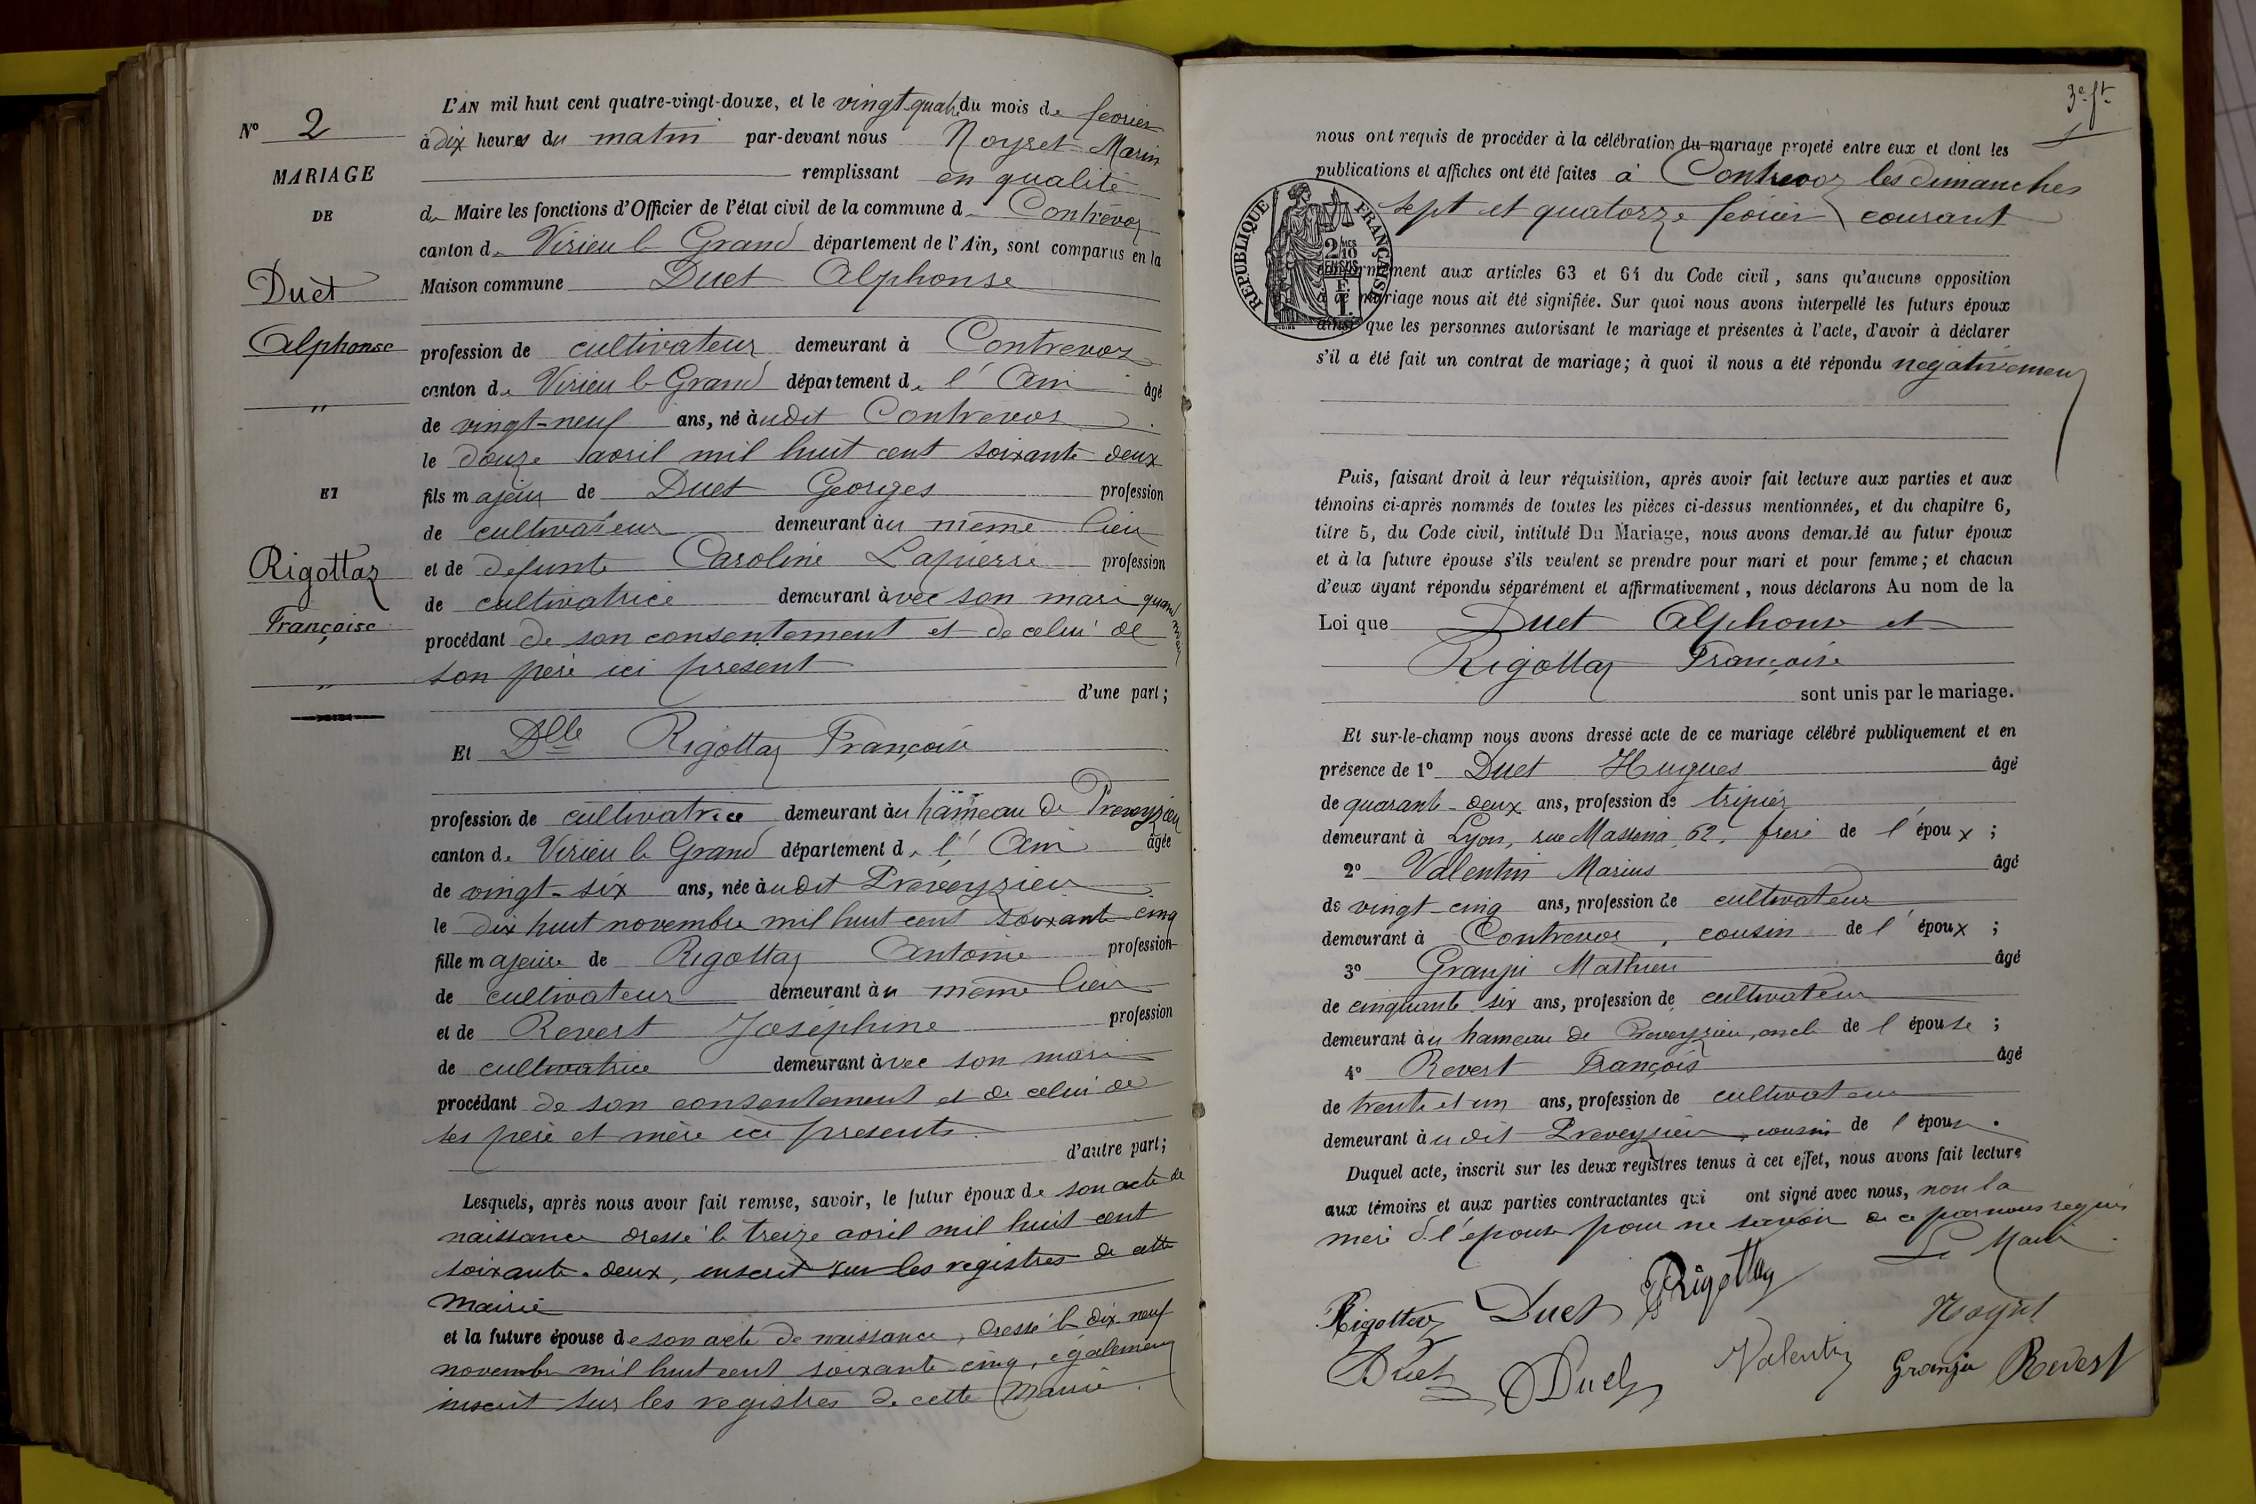 N° 2
MARIAGE
DE
Duet
Alphonse
"
ET
Rigottaz
Françoise
"
L'AN mil huit cent quatre-vingt-douze, et le vingt-quatre du mois de février
à dix heures du matin par-devant nous Noyret Marin
remplissant en qualité
de Maire les fonctions d'Officier de l'état civil de la commune d. Contrevoz
canton de Virieu le Grand département de l'Ain, sont comparus en la
Maison commune Duet Alphonse
profession de cultivateur demeurant à Contrevoz
canton de Virieu le Grand département de l'Ain âgé
de vingt-neuf ans, né àudit Contrevoz
le douze avril mil huit cent soixante deux
fils majeur de Duet Georges profession
de cultivateur demeurant àu même lieu
et de défunte Caroline Lapierre profession
de cultivatrice demeurant àvec son mari quand
procédant de son consentement et de celui de
son père ici présent
d'une part;
Et Dlle Rigottaz Françoise
profession de cultivatrice demeurant àu hameau de Preveyzieu
canton de Virieu le Grand département de l'Ain âgée
de vingt-six ans, née àudit Preveyzieu
le dix huit novembre mil huit cent soixante cinq
fille majeure de Rigottaz Antoine profession
de cultivateur demeurant àu même lieu
et de Revert Joséphine profession
de cultivatrice demeurant àvec son mari
procédant de son consentement et de celui de
ses père et mère ici présents.
d'autre part;
Lesquels, après nous avoir fait remise, savoir, le futur époux de son acte de
naissance dressé le treize avril mil huit cent
soixante-deux, inscrit sur les registres de cette
Mairie
et la future épouse de son acte de naissance, dressé le dix neuf
novembre mil huit cent soixante cinq, également
inscrit sur les registres de cette Mairie.
3e ft.
nous ont requis de procéder à la célébration du mariage projeté entre eux et dont les
publications et affiches ont été faites à Contrevoz les dimanches
sept et quatorze février courant
RÉPUBLIQUE FRANÇAISE
2/10
EN SUS
conformément aux articles 63 et 64 du Code civil, sans qu'aucune opposition
à ce mariage nous ait été signifiée. Sur quoi nous avons interpellé les futurs époux
ainsi que les personnes autorisant le mariage et présentes à l'acte, d'avoir à déclarer
s'il a été fait un contrat de mariage; à quoi il nous a été répondu négativement
Puis, faisant droit à leur réquisition, après avoir fait lecture aux parties et aux
témoins ci-après nommés de toutes les pièces ci-dessus mentionnées, et du chapitre 6,
titre 5, du Code civil, intitulé Du Mariage, nous avons demandé au futur époux
et à la future épouse s'ils veulent se prendre pour mari et pour femme; et chacun
d'eux ayant répondu séparément et affirmativement, nous déclarons Au nom de la
Loi que Duet Alphonse et
Rigottaz Françoise
sont unis par le mariage.
Et sur-le-champ nous avons dressé acte de ce mariage célébré publiquement et en
présence de 1° Duet Hugues âgé
de quarante-deux ans, profession de tripier
demeurant à Lyon, rue Massena, 62, frère de l'époux;
2° Valentin Marius âgé
de vingt-cinq ans, profession de cultivateur
demeurant à Contrevoz, cousin de l'époux;
3° Granju Mathieu âgé
de cinquante six ans, profession de cultivateur
demeurant àu hameau de Preveyzieu, oncle de l'épouse;
4° Revert François âgé
de trente et un ans, profession de cultivateur
demeurant àudit Preveyzieu, cousin de l'épouse.
Duquel acte, inscrit sur les deux registres tenus à cet effet, nous avons fait lecture
aux témoins et aux parties contractantes qui ont signé avec nous, non la
mère de l'épouse pour ne savoir de ce par nous requis
Le Maire
Rigottaz Duet Rigottaz Noyret
Duet Duet Valentin Granju Revert